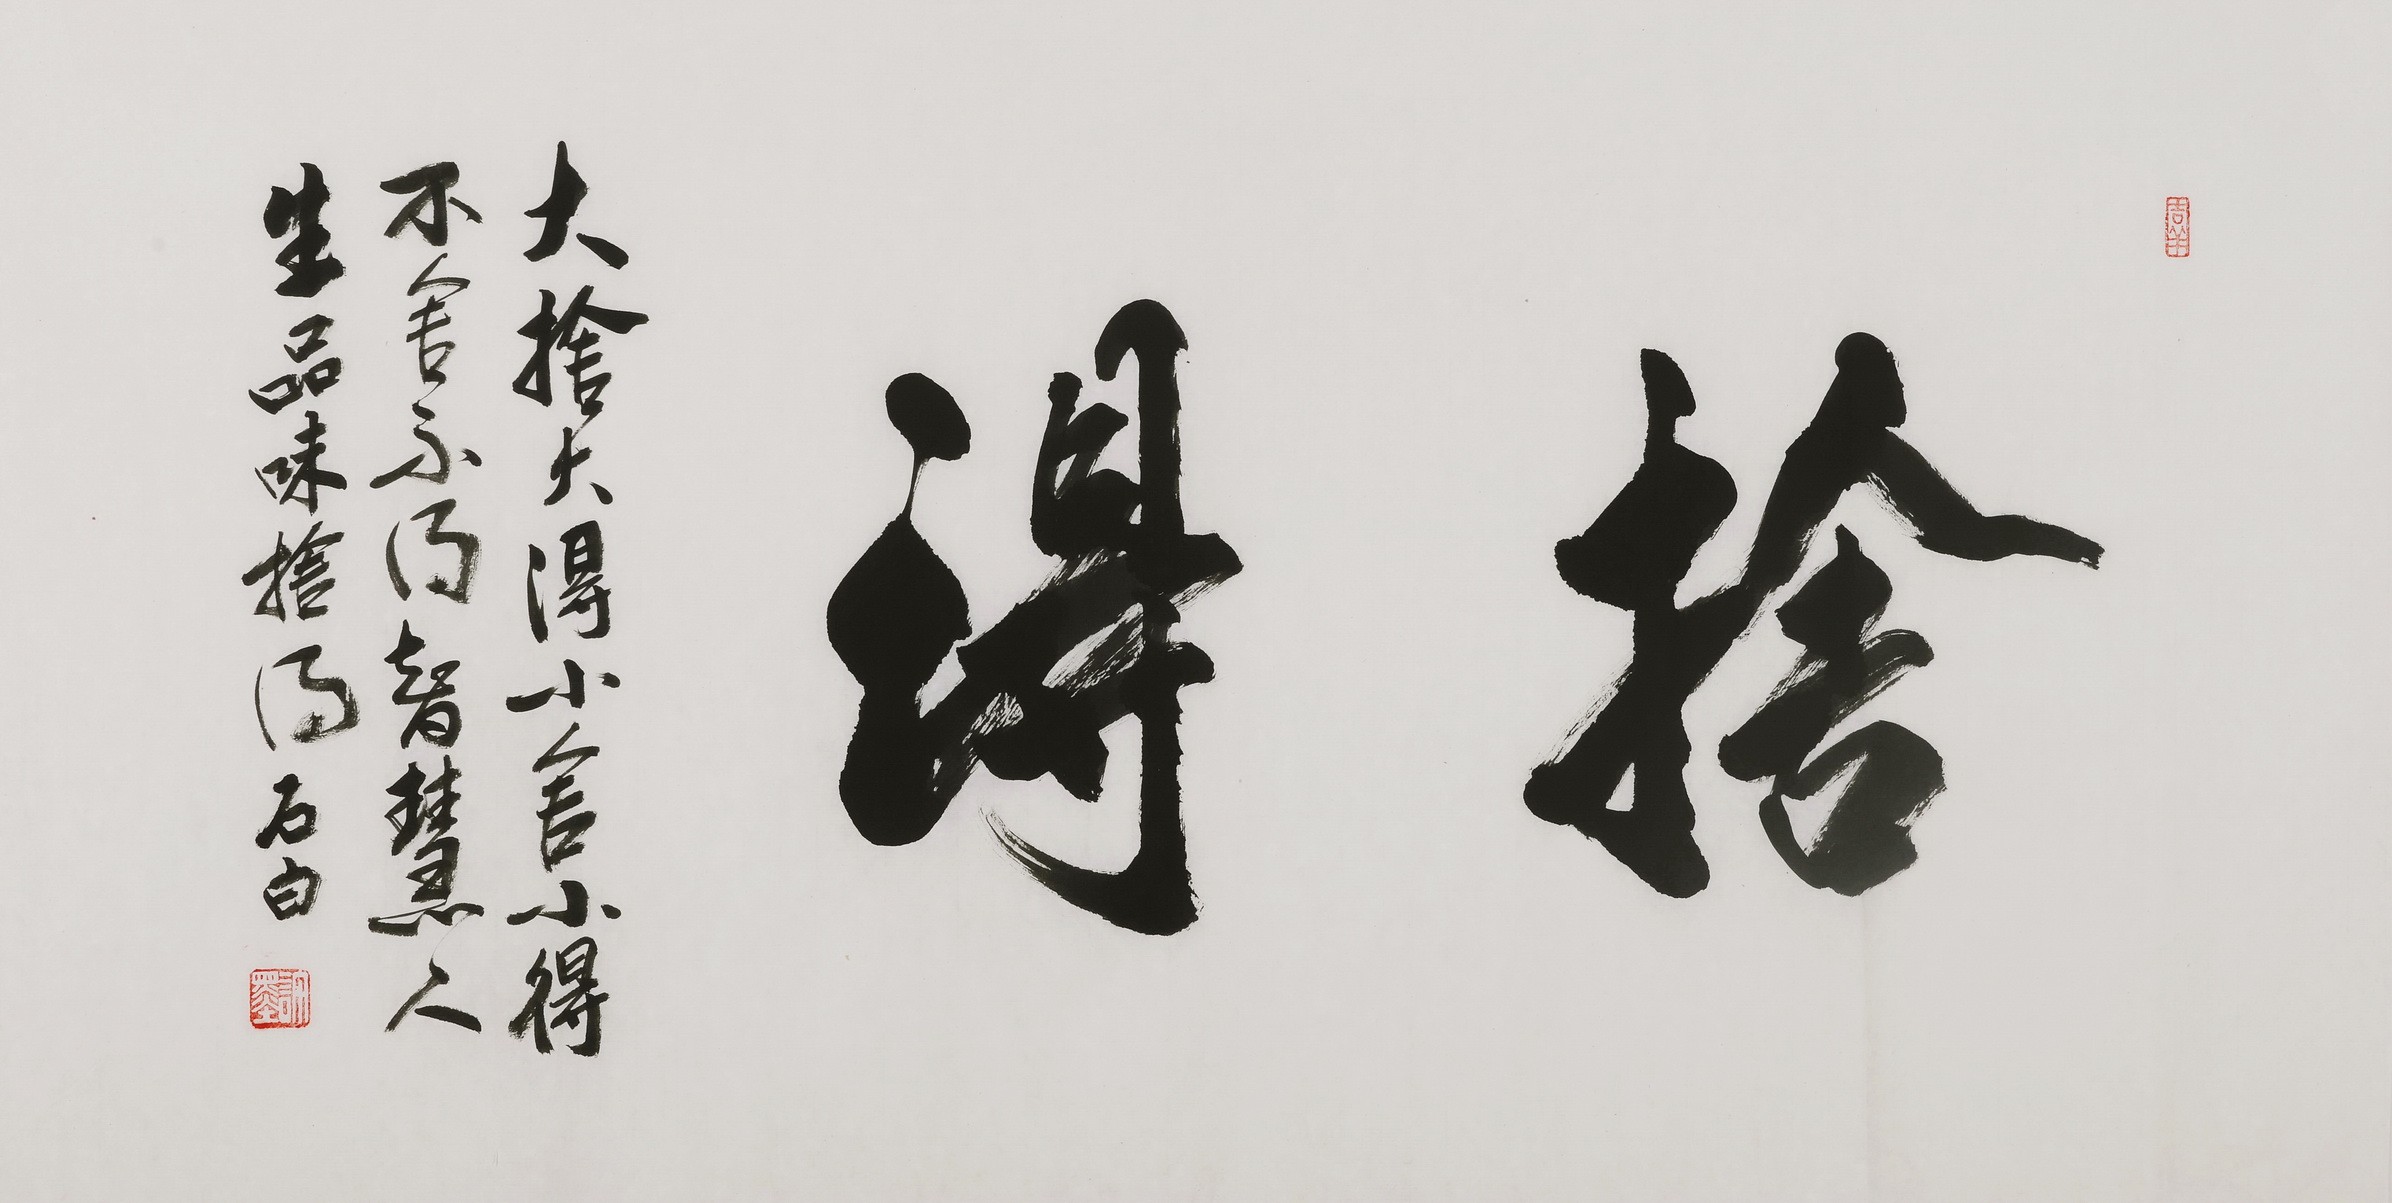 捨得
大捨大得小舍小得
不舍不得智慧人
生品味捨得
石白